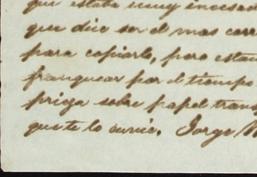 que estaba muy
que dice ser el mas
para copiarlo, pero
franquear por el tiempo
priga sobre papel
que te lo envié. Jorge